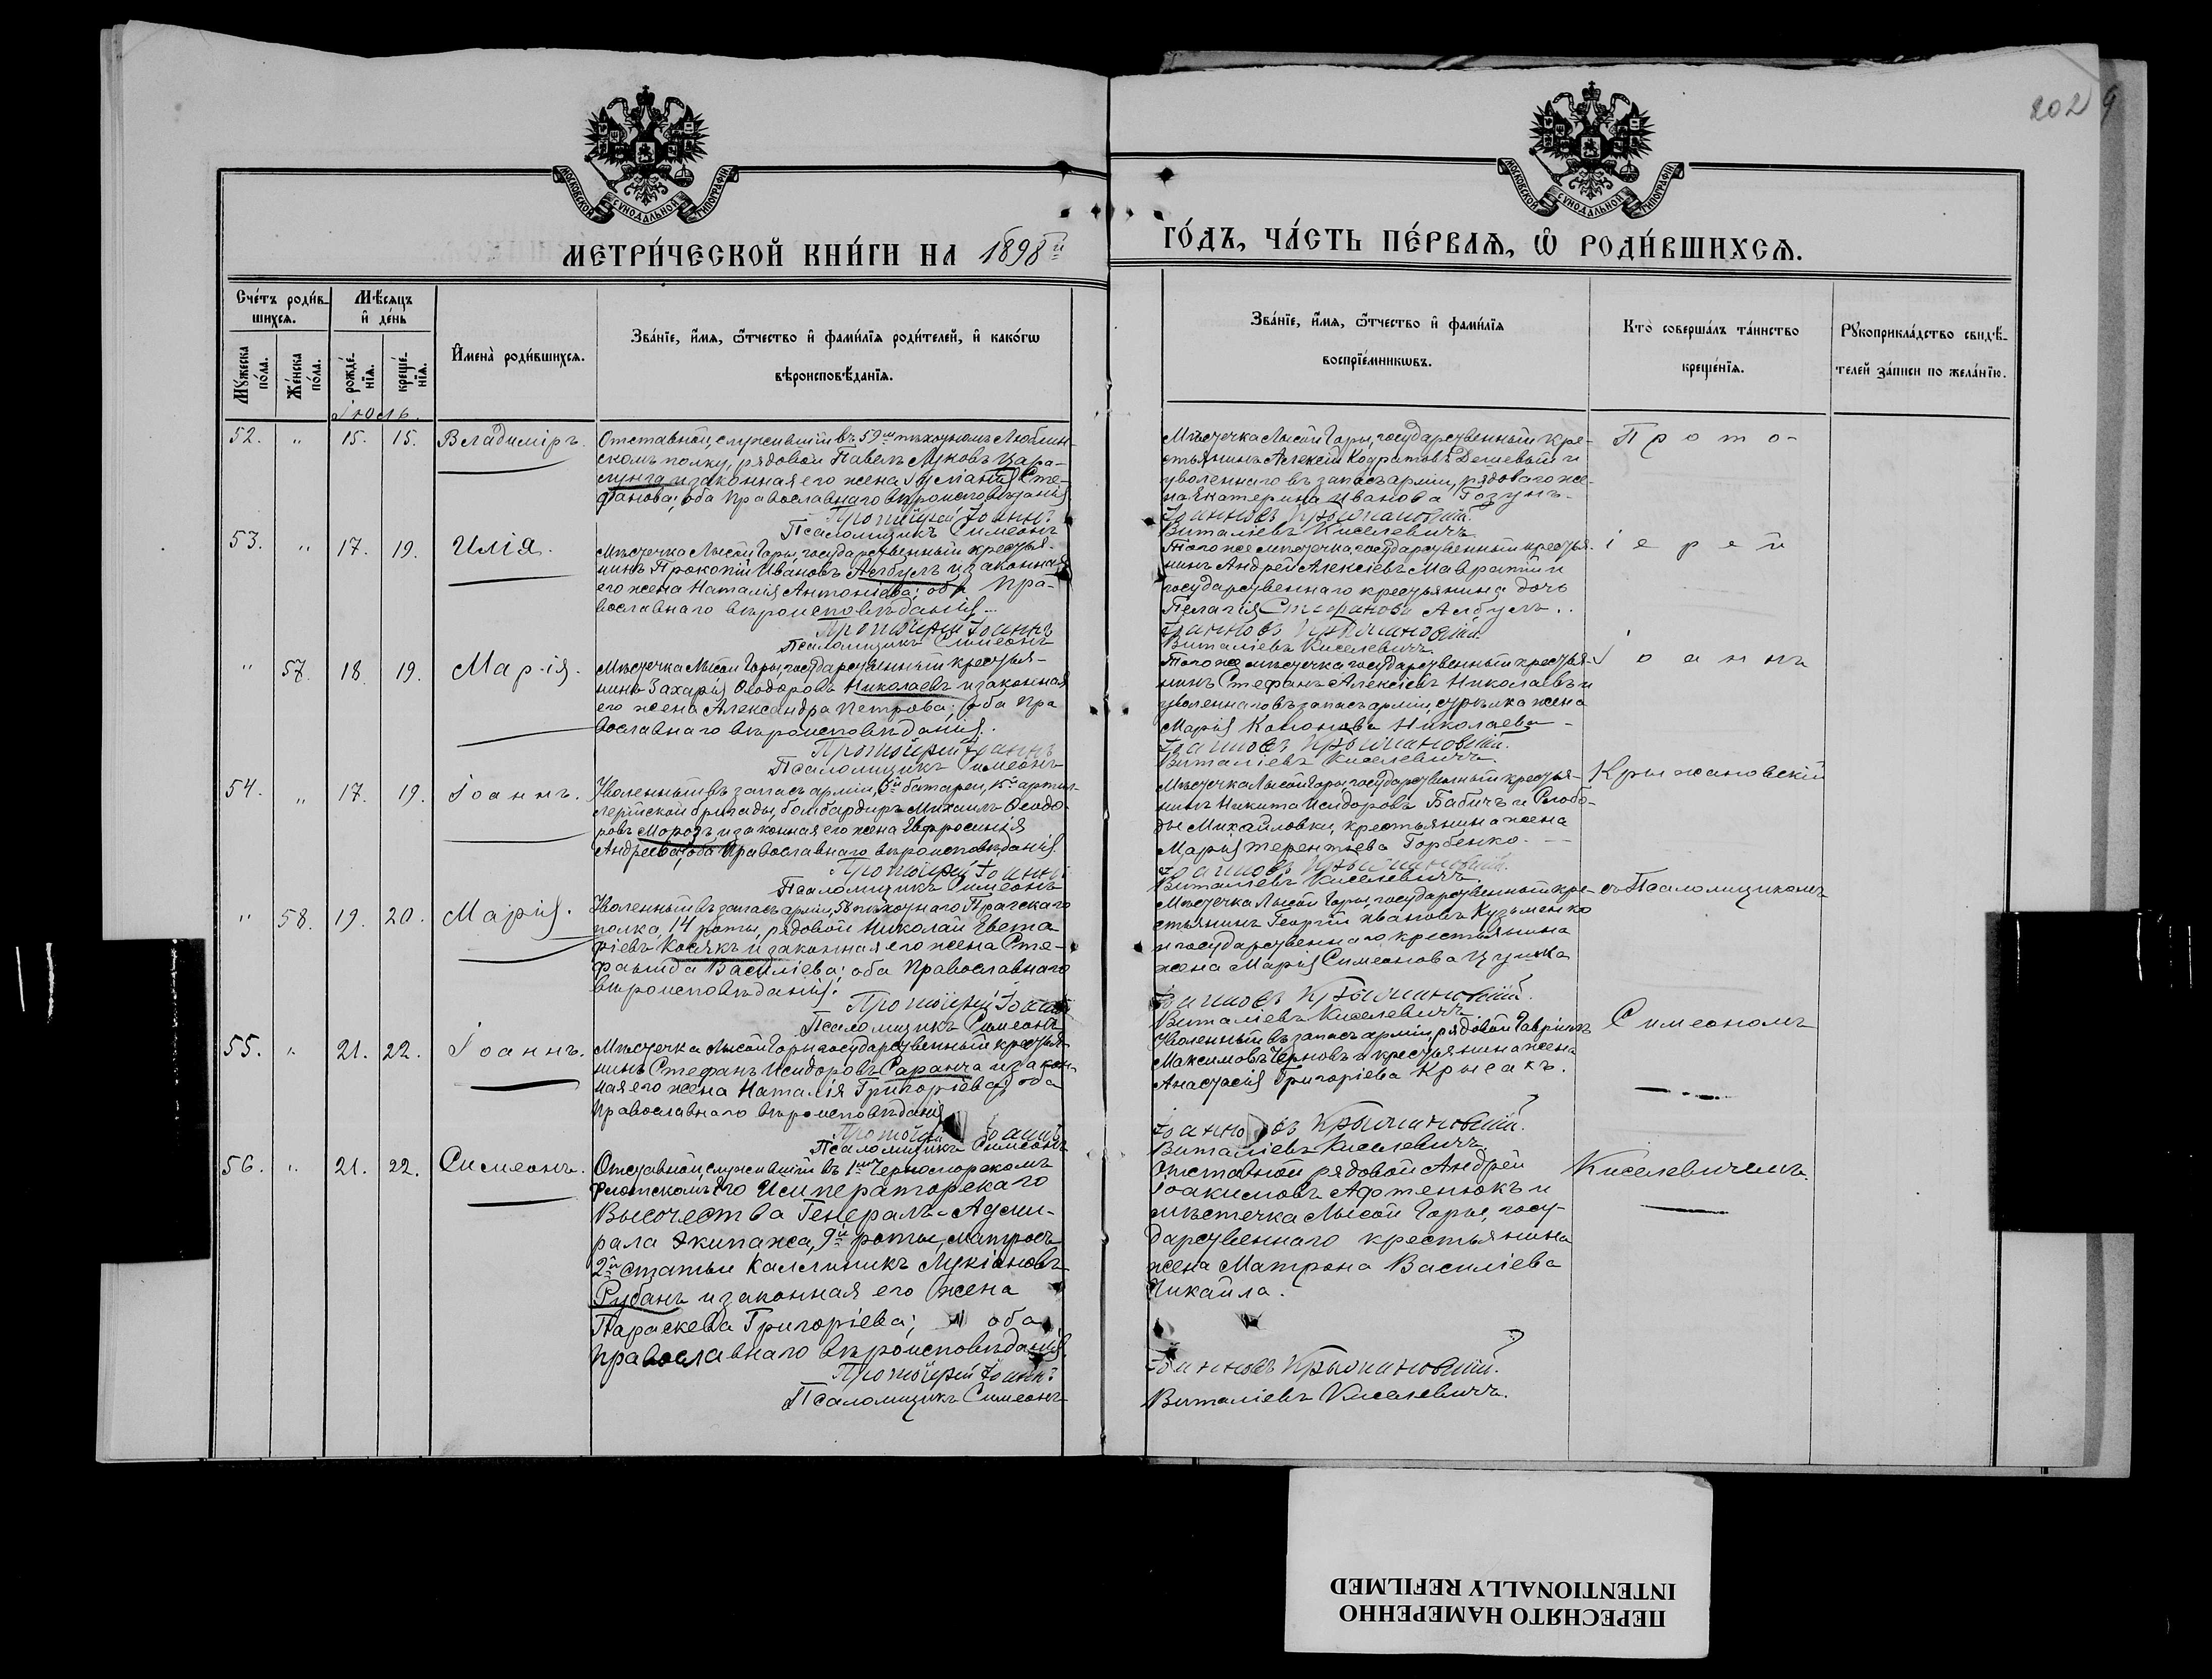 202 9
МОСКОВСКОЙ СѴНОДАЛЬНОЙ ТИПОГРАФІИ.
МОСКОВСКОЙ СѴНОДАЛЬНОЙ ТИПОГРАФІИ.
МЕТРИ́ЧЕСКОЙ КНИ́ГИ НА 1898й
ГО́ДЪ, ЧА́СТЬ ПЕ́РВАѦ, Ѡ҆ РОДИ́ВШИХСѦ.
Сче́тъ роди́в-
шихся.
Мѣ́сяцъ
и҆ де́нь
Мꙋ́жеска
по́ла.
Же́нска
по́ла.
рожде́-
нїя.
креще́-
нїя.
И҆мена̀ роди́вшихся.
Зва́нїе, и҆́мя, ѻ҆́тчество и҆ фамі́лїя роди́телей, и҆ како́гѡ
вѣроисповѣ́данїя.
Зва́нїе, и҆́мя, ѻ҆́тчество и҆ фамі́лїя
воспрїе́мникѡвъ.
Кто̀ соверша́лъ та́инство
креще́нїя.
Рꙋкоприкла́дство свидѣ́-
телей за́писи по жела́нїю.
Іюль.
52. " 15. 15. Владиміръ.
Отставной, служившій въ 59мъ пѣхотномъ Люблин-
скомъ полку, рядовой Павелъ Луковъ Цара-
лунга и законная его жена Іуліанія Сте-
фанова; оба Православнаго вѣроисповѣданія
Протоіерей Іоаннъ
Псаломщикъ Симеонъ
Мѣстечка Лысой Горы, государственный кре-
стьянинъ Алексій Кодратовъ Дешевый и
уволеннаго въ запасъ арміи, рядоваго же-
на Екатерина Иванова Гозунъ.
Іанновъ Крыжановскій.
Виталіевъ Киселевичъ.
Прото-
53. " 17. 19. Илія.
Мѣстечка Лысой Горы, государственный крестья-
нинъ Прокопій Ивановъ Албулъ и законная
его жена Наталія Антоніева; оба Пра-
вославнаго вѣроисповѣданія.
Протоіерей Іоаннъ
Псаломщикъ Симеонъ
Того же мѣстечка, государственный крестья-
нинъ Андрей Алексіевъ Мавратій и
государственнаго крестьянина дочь
Пелагія Стефанова Албулъ.
Іанновъ Крыжановскій.
Виталіевъ Киселевичъ.
іерей
" 57. 18. 19. Марія.
Мѣстечка Лысой Горы, государственный крестья-
нинъ Захарія Ѳеодоровъ Николаевъ и законная
его жена Александра Петрова; оба Пра
вославнаго вѣроисповѣданія.
Протоіерей Іоаннъ
Псаломщикъ Симеонъ
Того же мѣстечка, государственный крестья-
нинъ Стефанъ Алексіевъ Николаевъ и
уволеннаго въ запасъ арміи, стрѣлка жена
Марія Кононова Николаева
Іанновъ Крыжановскій.
Виталіевъ Киселевичъ.
Іоаннъ
54. " 17. 19. Іоаннъ.
Уволенный въ запасъ арміи, 3й батареи, 15й артил-
лерійской бригады, бомбардиръ Михаилъ Ѳеодо-
ровъ Морозъ и законная его жена Евфросинія
Андреева; оба Православнаго вѣроисповѣданія
Протоіерей Іоаннъ
Псаломщикъ Симеонъ
Мѣстечка Лысой Горы, государственный крестья-
нинъ Никита Исидоровъ Бабичъ и Слобо-
ды Михайловки, крестьянина жена
Марія Терентьева Горбенко.
Іанновъ Крыжановскій.
Виталіевъ Киселевичъ.
Крыжановскій
" 58. 19. 20. Марія.
Уволенный въ запасъ арміи, 58 пѣхотнаго Прагскаго
полка, 14 роты, рядовой Николай Евста
фіевъ Косякъ и законная его жена Сте-
фанида Василіева; оба Православнаго
вѣроисповѣданія.
Протоіерей Іоаннъ
Псаломщикъ Симеонъ
Мѣстечка Лысой Горы, государственный кре-
стьянинъ Георгій Ивановъ Кузьменко
и государственнаго крестьянина
жена Марія Симеонова Цулка
Іанновъ Крыжановскій.
Виталіевъ Киселевичъ.
съ Псаломщикомъ
55. " 21. 22. Іоаннъ.
Мѣстечка Лысой Горы государственный крестья-
нинъ Стефанъ Исидоровъ Саранча и закон-
ная его жена Наталія Григоріева; оба
Православнаго вѣроисповѣданія
Протоіерей Іоаннъ
Псаломщикъ Симеонъ
Уволенный въ запасъ арміи, рядовой Гавріилъ
Максимовъ Черновъ и крестьянина жена
Анастасія Григоріева Крысакъ.
Іанновъ Крыжановскій.
Виталіевъ Киселевичъ
Симеономъ
56. " 21. 22. Симеонъ.
Отставной, служившій въ 1мъ Черноморскомъ
флотскомъ Его Императорскаго
Высочества Генералъ-Адми-
рала Экипажа, 9й роты, матросъ
2й статьи Каллиникъ Лукіановъ
Рубанъ и законная его жена
Параскева Григоріева; оба
Православнаго вѣроисповѣданія.
Протоіерей Іоаннъ
Псаломщикъ Симеонъ
Отставной рядовой Андрей
Іоакимовъ Афтенюкъ и
мѣстечка Лысой Горы, госу-
дарственнаго крестьянина
жена Матрона Василіева
Чикаила.
Іанновъ Крыжановскій.
Виталіевъ Киселевичъ.
Киселевичемъ.
ПЕРЕСНЯТО НАМЕРЕННО
INTENTIONALLY REFILMED